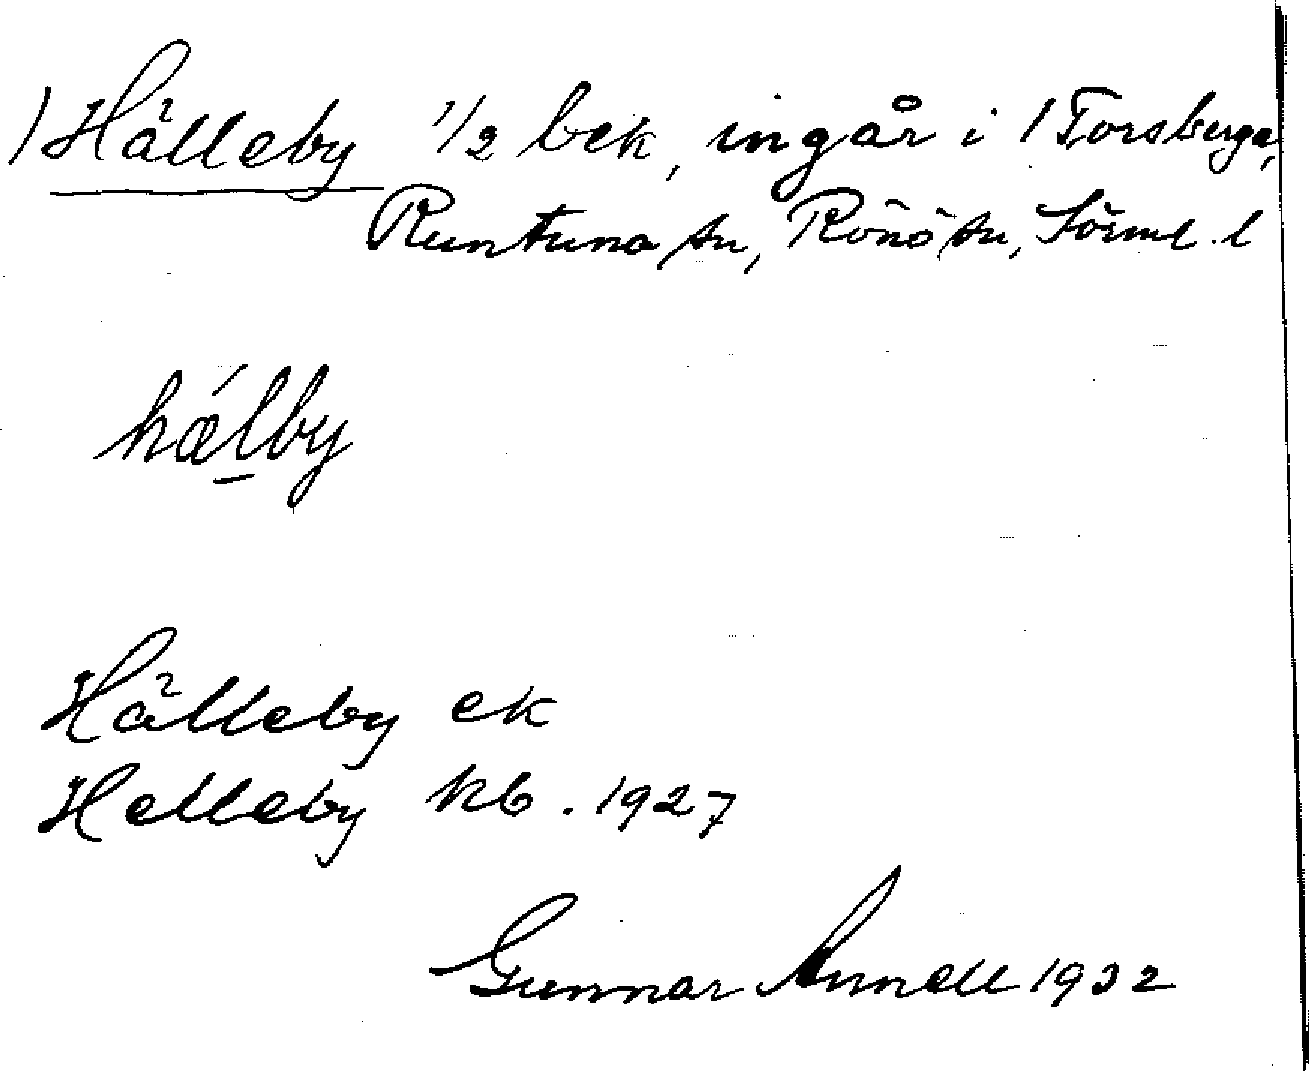 ) Hälleby 1/2 bek, ingår i 1 Torsberga,
Runtuna sn, Rönö hu, Sörml. l
hǽlby
Hälleby ek
Helleby kb. 1927
Gunnar Arnell 1932